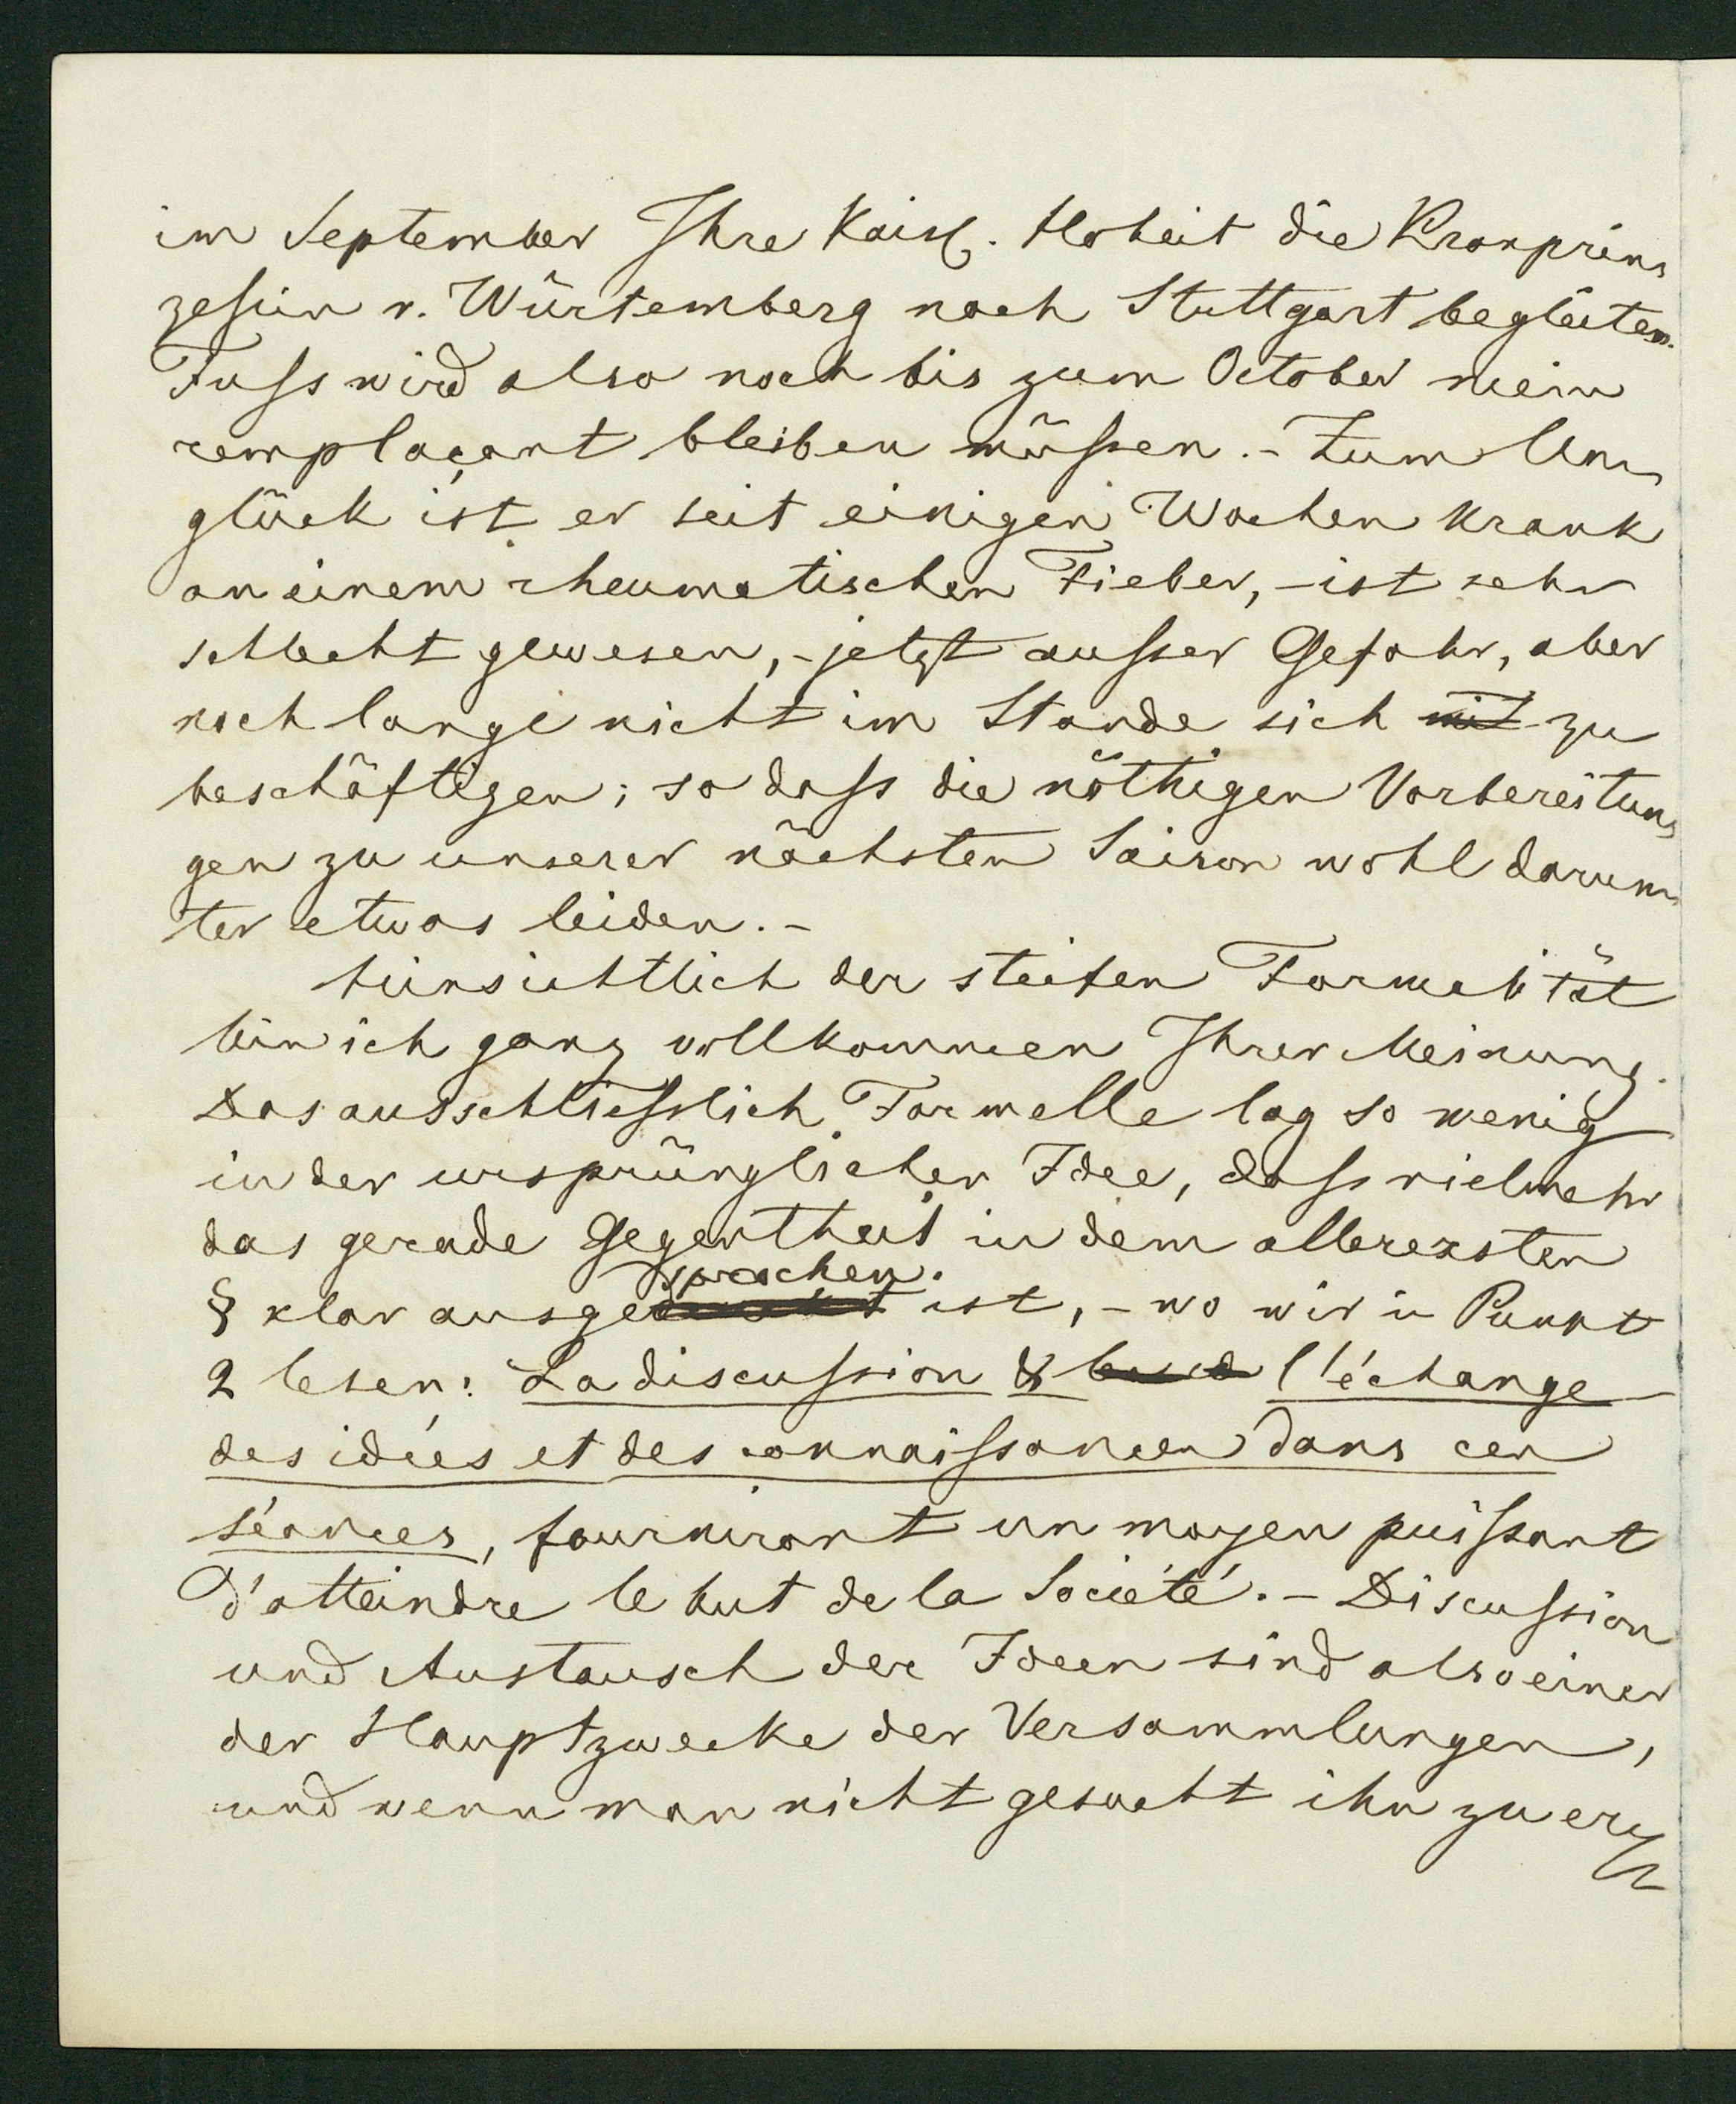 im September Ihre Kaisl. Hoheit die Kronprin-
zessin v. Würtemberg nach Stuttgart begleiten.
Fuss wird also noch bis zum October mein
remplaçant bleiben müssen. – Zum Un-
glück ist er seit einigen Wochen krank
an einem rheumatischen Fieber, – ist sehr
schlecht gewesen, – jetzt ausser Gefahr, aber
noch lange nicht im Stande sich mit zu
beschäftigen; so dass die nöthigen Vorbereitun-
gen zu unserer nächsten Saison wohl darun-
ter etwas leiden. –
hinsichtlich der steifen Formalität
bin ich ganz vollkommen Ihrer Meinung.
Das ausschliesslich Formelle lag so wenig
in der ursprünglichen Idee, dass vielmehr
das gerade Gegentheil in dem allerersten
sprochen.
§ klar ausgedruckt ist, – wo wir in Punkt
2 lesen: La discussion & l'échange
des idées et des connaissances dans ces
séances, fourniront un moyen puissant
d'atteindre le but de la Société. – Discussion
und Austausch der Ideen sind also einer
der Hauptzwecke der Versammlungen,
und wenn man nicht gesucht ihn zu er-